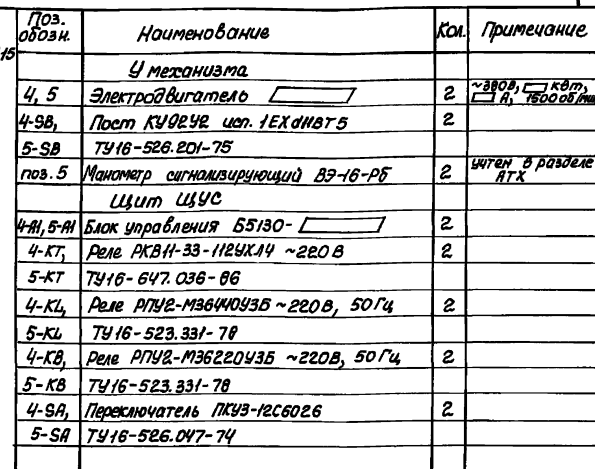 Поз. обозн. Наименование Кол. Примечание
15
У механизма
4, 5 Электродвигатель 2 ~380В, кВт,
А, 1500 об/мин
4-SB, Пост КУ92У2 исп. 1ЕхdIIВТ5 2
5-SB ТУ16-526.201-75
поз. 5 Манометр сигнализирующий ВЭ-16-Рб 2 учтен в разделе
АТХ
Щит ЩУС
4-А1, 5-А1 Блок управления Б5130- 2
4-КТ, Реле РКВ11-33-112УХЛ4 ~220В 2
5-КТ ТУ16-647.036-86
4-KL, Реле РПУ2-М36440У3Б ~220В, 50Гц 2
5-KL ТУ16-523.331-78
4-КВ, Реле РПУ2-М36220У3Б ~220В, 50Гц 2
5-КВ ТУ16-523.331-78
4-SA, Переключатель ПКУ3-12С6026 2
5-SA ТУ16-526.047-74